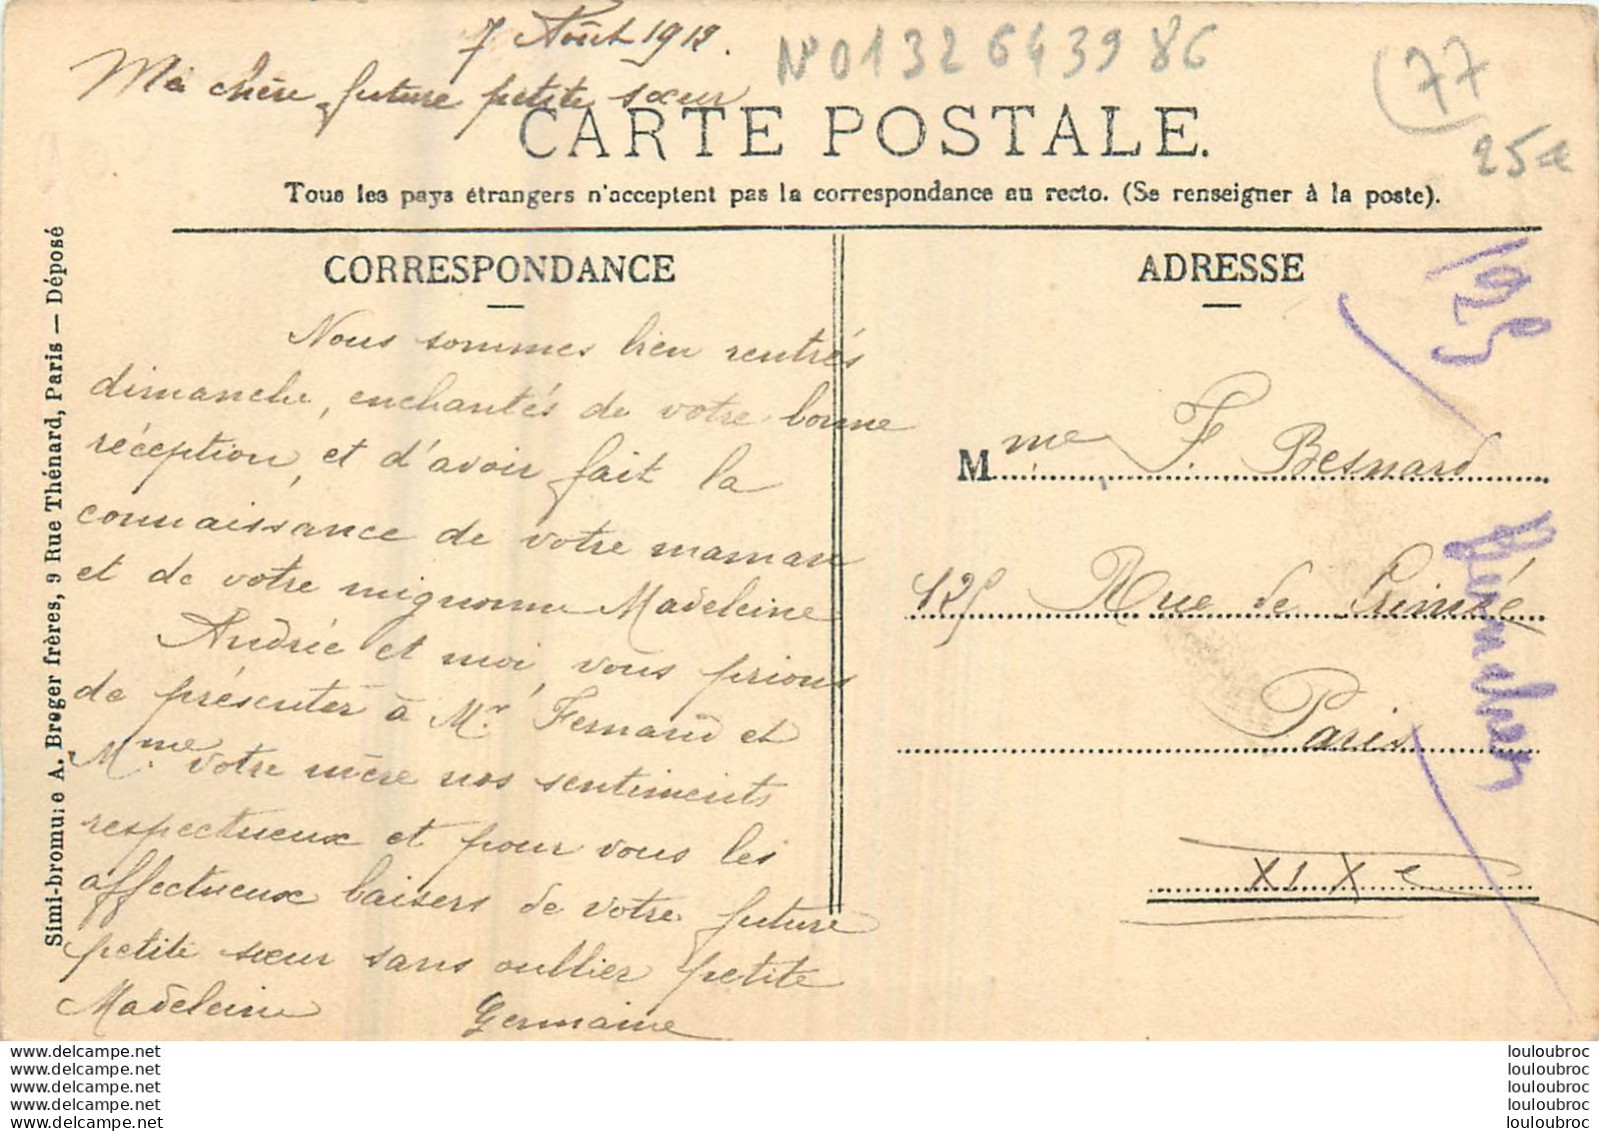 7 Août 1912.
Ma chère future petite sœur
N°0132643986
(77
25€
CARTE POSTALE.
Tous les pays étrangers n'acceptent pas la correspondance au recto. (Se renseigner à la poste).
CORRESPONDANCE
Nous sommes bien rentrés
dimanche, enchantés de votre bonne
réception, et d'avoir fait la
connaissance de votre maman
et de votre mignonne Madeleine
Andrée et moi, vous prions
de présenter à Mr. Fernand et
Mme votre mère nos sentiments
respectueux et pour vous les
affectueux baisers de votre future
petite sœur sans oublier petite
Madeleine Germaine
ADRESSE
Mme F. Besnard
125 Rue de Crimée
Paris
XIXe
Simi-bromure A. Breger frères, 9 Rue Thénard, Paris — Déposé
www.delcampe.net
www.delcampe.net
www.delcampe.net
www.delcampe.net
www.delcampe.net
louloubroc
louloubroc
louloubroc
louloubroc
louloubroc